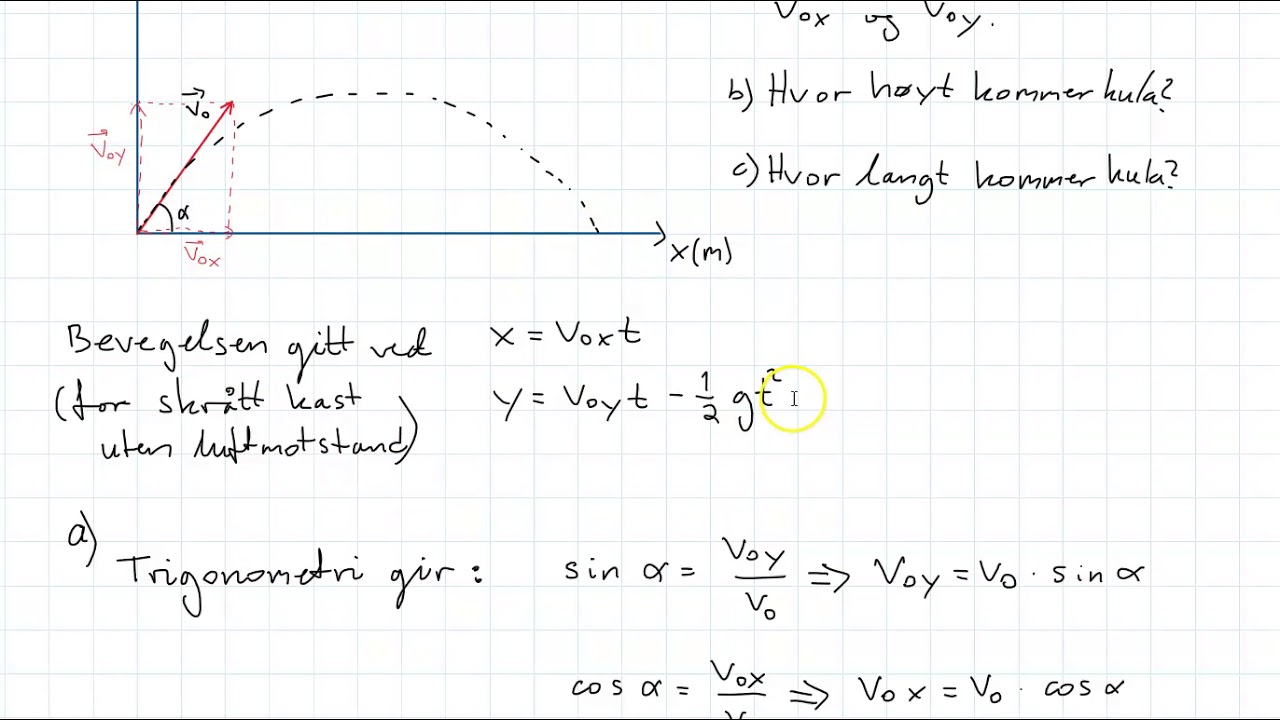 V₀ₓ og V₀y.
b) Hvor høyt kommer kula?
c) Hvor langt kommer kula?
V⃗₀
V⃗₀y
α
V⃗₀ₓ
x(m)
Bevegelsen gitt ved x = V₀ₓt
(for skrått kast y = V₀y t - 1/2 gt²
uten luftmotstand)
a)
Trigonometri gir: sin α = V₀y/V₀ => V₀y = V₀ · sin α
cos α = V₀ₓ/V => V₀ₓ = V₀ · cos α